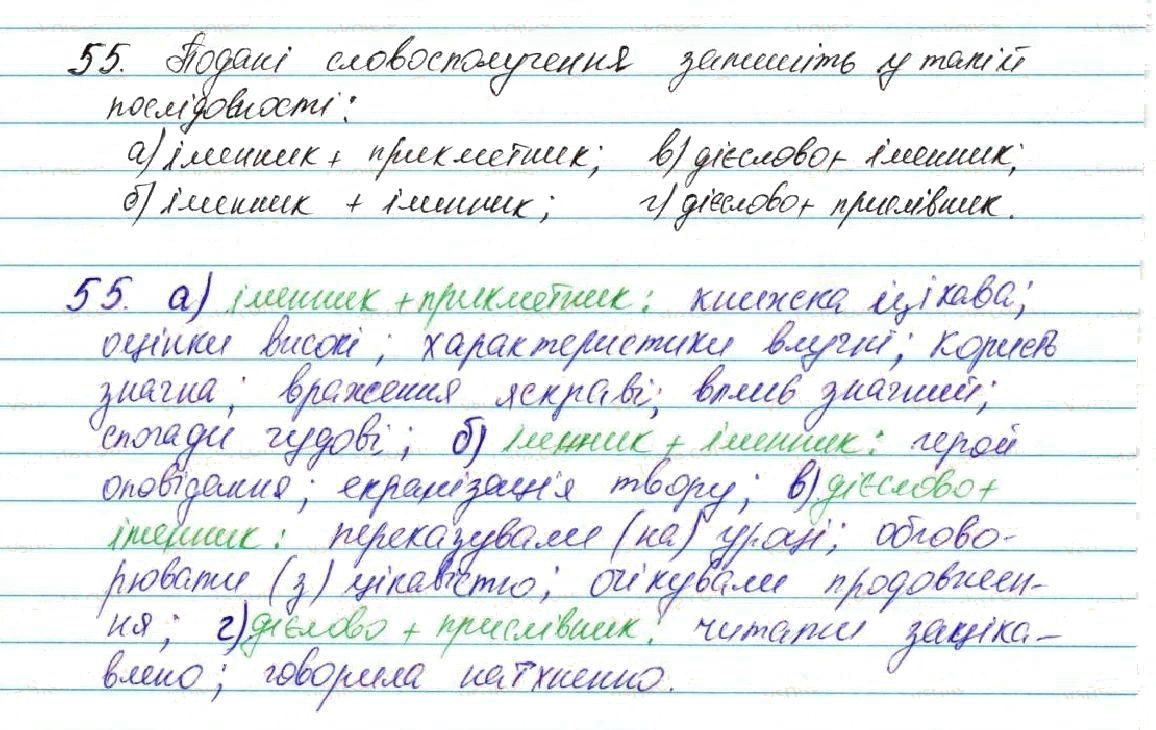 55. Подані словосполучення запишіть у такій
послідовності:
а) іменник + прикметник; в) дієслово + іменник;
б) іменник + іменник; г) дієслово + прислівник.
55. а) іменник + прикметник: книжка цікава;
оцінки високі; характеристики влучні; користь
значна; враження яскраві; вплив значний;
спогади чудові; б) іменник + іменник: герой
оповідання; екранізація твору; в) дієслово +
іменник: переказувати (на) уроці; обгово-
рювати (з) цікавістю; очікували продовжен-
ня; г) дієслово + прислівник: читати заціка-
влено; говорила натхненно.